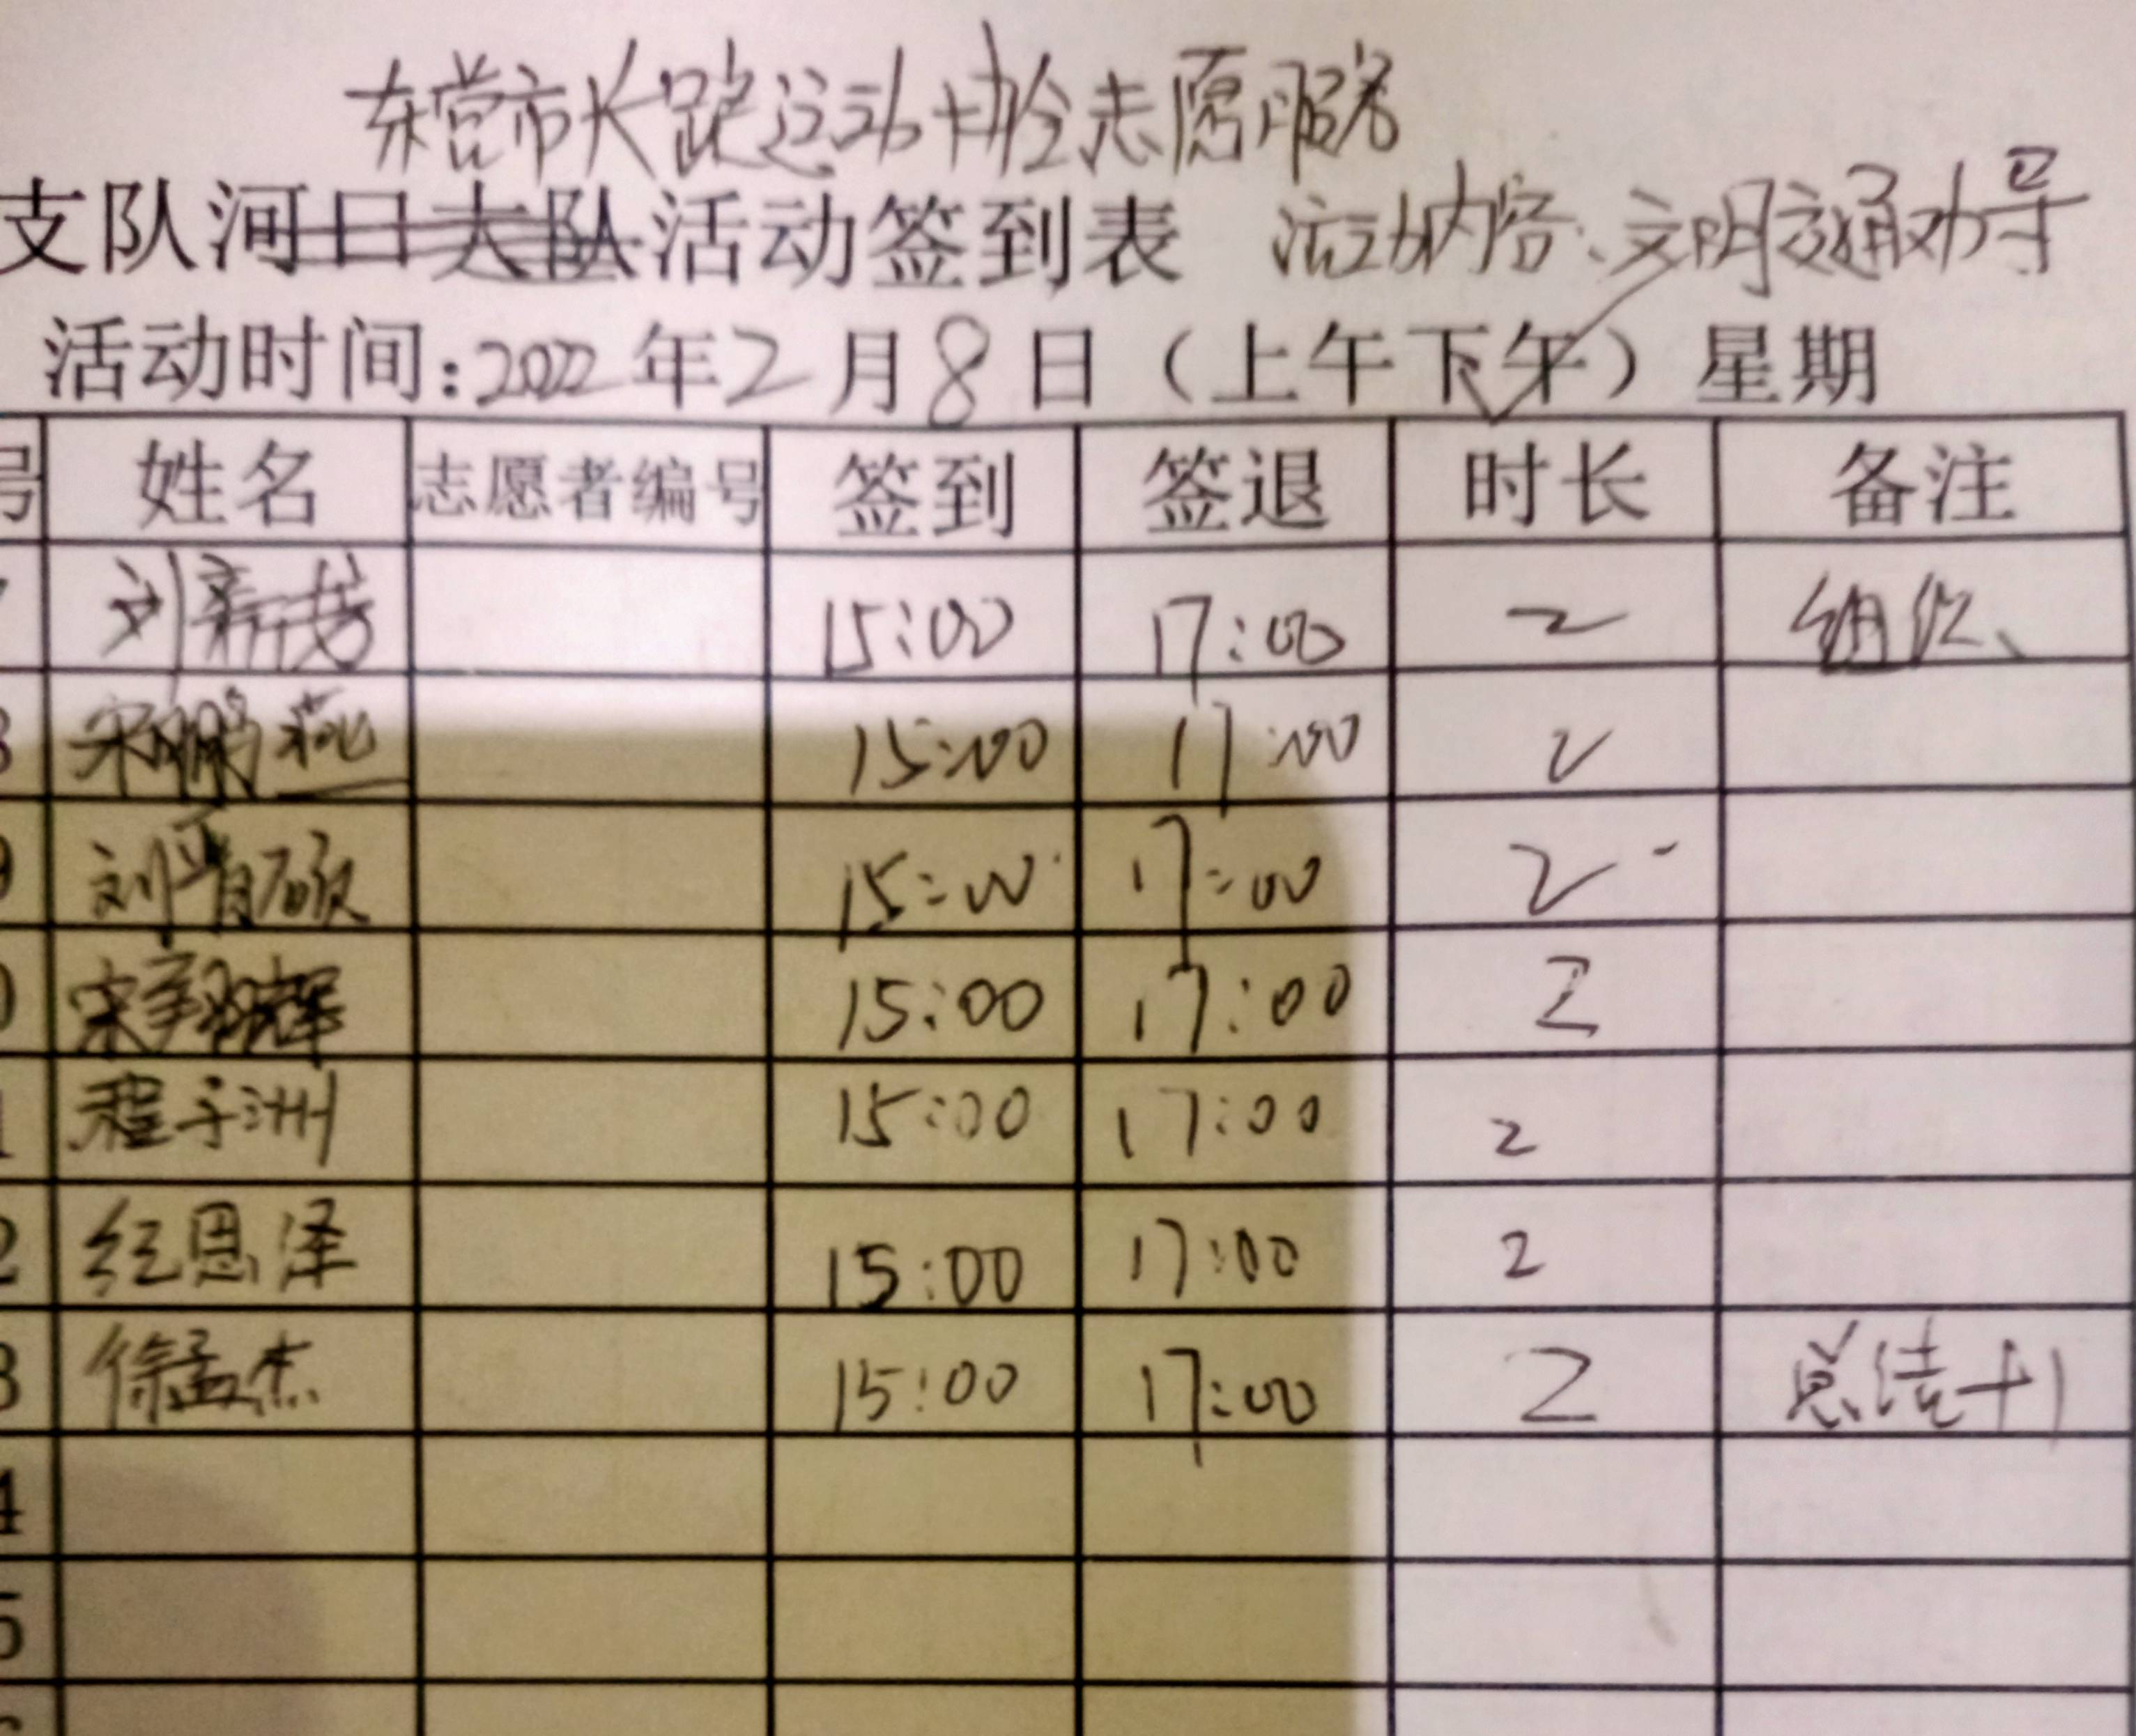 东营市长跑运动协会志愿服务
支队河口大队活动签到表 活动内容:文明交通劝导
活动时间:2022年2月8日（上午下午）星期
号 姓名 志愿者编号 签到 签退 时长 备注
刘 15:00 17:00 2 组织
宋鹏燕 15:00 17:00 2
刘 15:00 17:00 2
宋翔辉 15:00 17:00 2
程子洲 15:00 17:00 2
2 纪恩泽 15:00 17:00 2
3 徐孟杰 15:00 17:00 2 总结+1
4
5